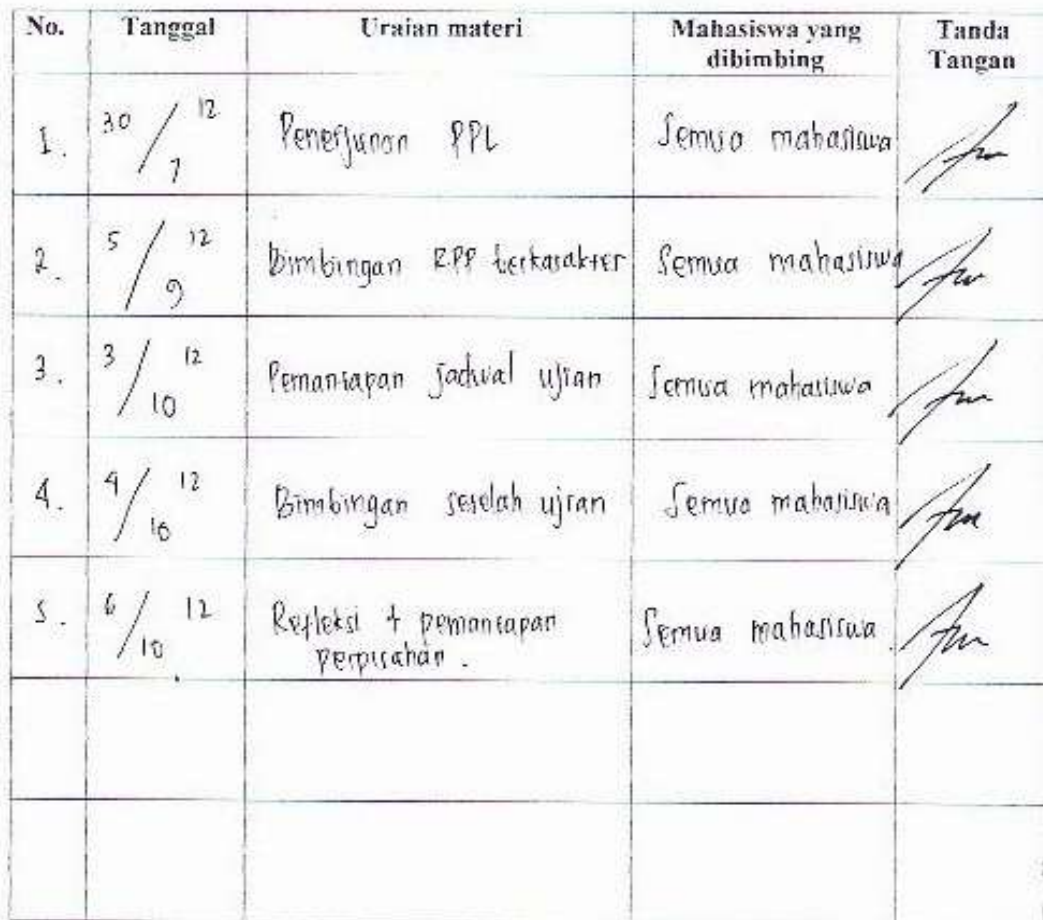 No. Tanggal Uraian materi Mahasiswa yang dibimbing Tanda Tangan
1. 30/7 12 Penerjunan PPL Semua mahasiswa
2. 5/9 12 Bimbingan RPP berkarakter Semua mahasiswa
3. 3/10 12 Pemantapan jadwal ujian Semua mahasiswa
4. 4/10 12 Bimbingan setelah ujian Semua mahasiswa
5. 6/10 12 Refleksi + pemantapan
perpisahan. Semua mahasiswa.